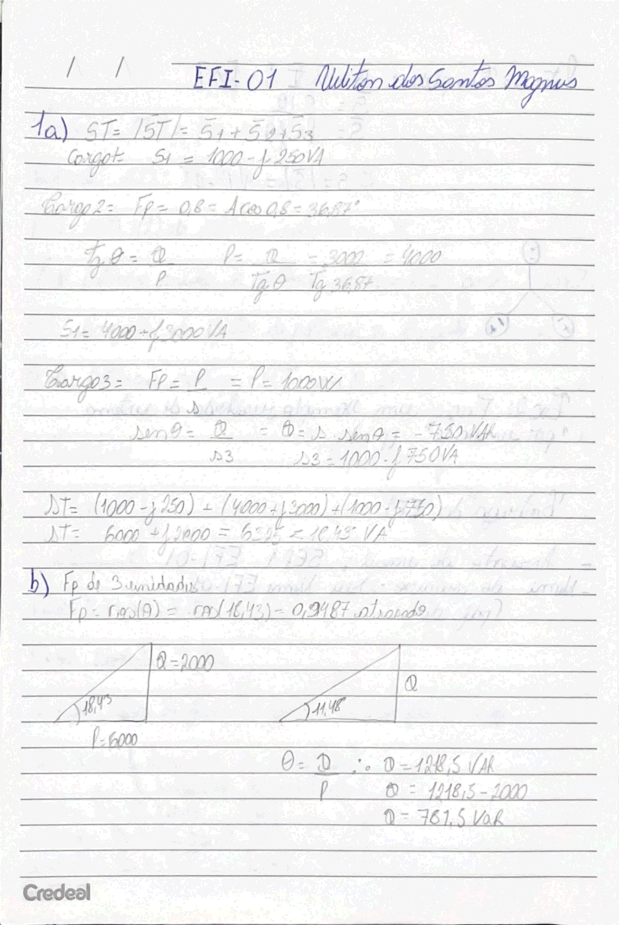 / /
EFI-01 Ueliton dos Santos Magnus
1a) ST= |ST| = S̄1 + S̄2 + S̄3
Carga1= S1 = 1000 - j 250VA
Carga 2= Fp = 0,8 = Acos 0,8 = 36,87°
Tg θ = Q/P P= Q/Tg θ = 3000/Tg 36,87 = 4000
S1= 4000 + j 3000 VA
Carga 3= FP = P/s = P= 1000W
sen θ = Q/s3 = Q= s. sen θ = -750 VAR
s3 = 1000 - j 750VA
ST= (1000 - j 250) + (4000 + j 3000) + (1000 - j 750)
ST= 6000 + j 2000 = 6325 ∠ 18,43 VA
b) Fp de 3 unidades
Fp = cos(θ) = cos(18,43) = 0,9487 atrasado
Q=2000
18,43
P=6000
Q
11,48
θ = Q/P ∴ Q = 1218,5 VAR
Q = 1218,5 - 2000
Q = 781,5 VaR
Credeal